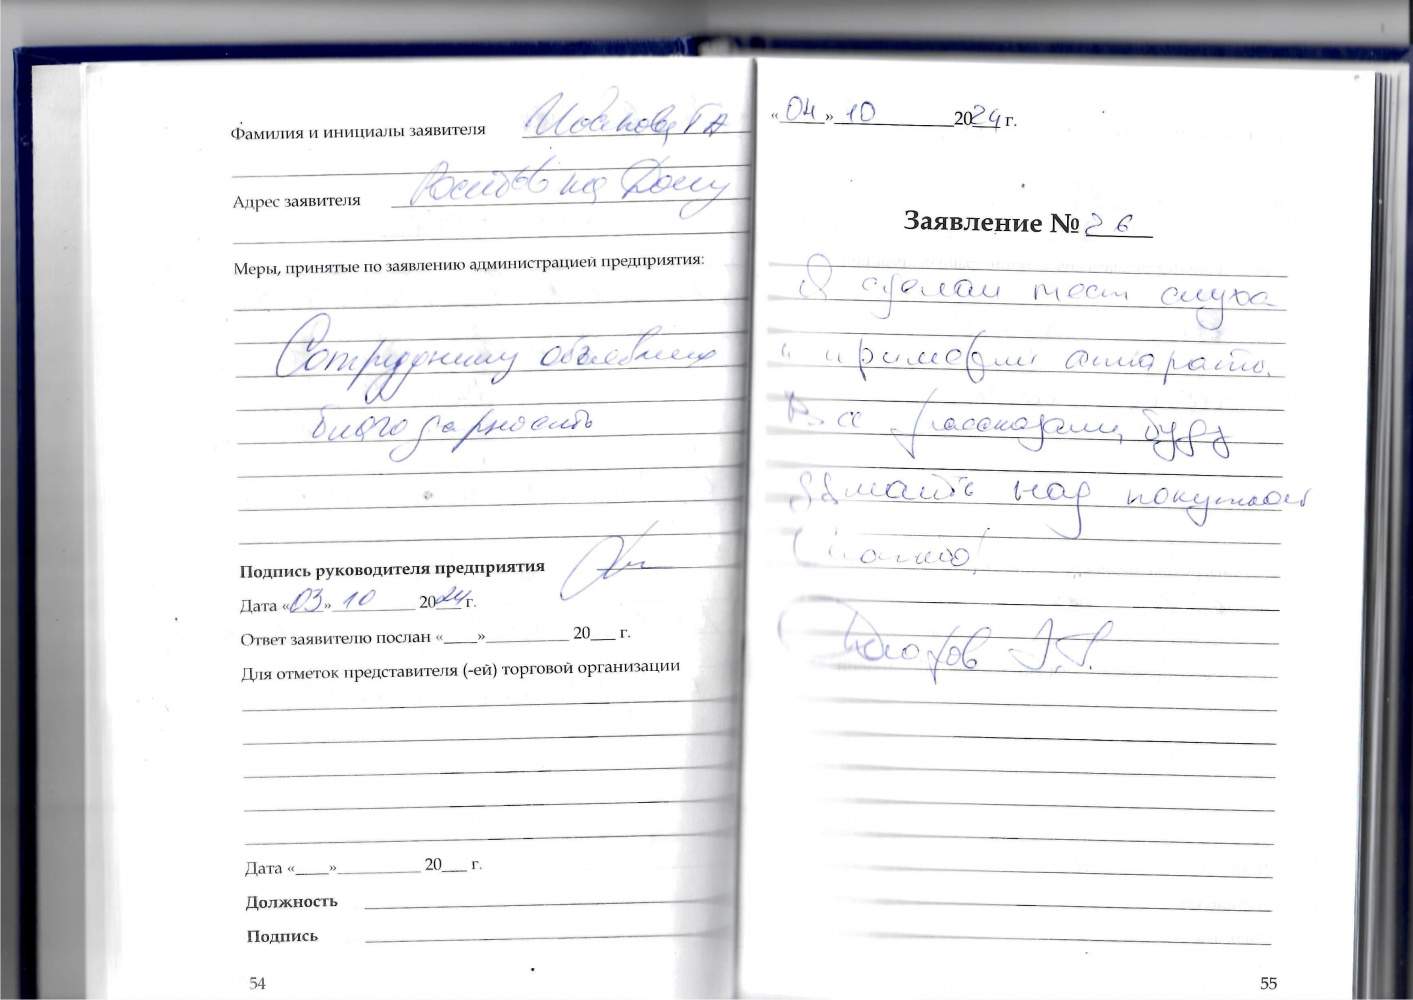 Фамилия и инициалы заявителя Иванова Г А
Адрес заявителя Ростов на Дону
Меры, принятые по заявлению администрацией предприятия:
Сотруднику объявлена
благодарность
Подпись руководителя предприятия
Дата «03» 10 2024 г.
Ответ заявителю послан «____»__________ 20___ г.
Для отметок представителя (-ей) торговой организации
Дата «____»__________ 20___ г.
Должность
Подпись
54
«04» 10 2024 г.
Заявление № 26
Я сделал тест слуха
и примерил аппараты.
Все рассказали, буду
думать над покупкой
Спасибо!
55